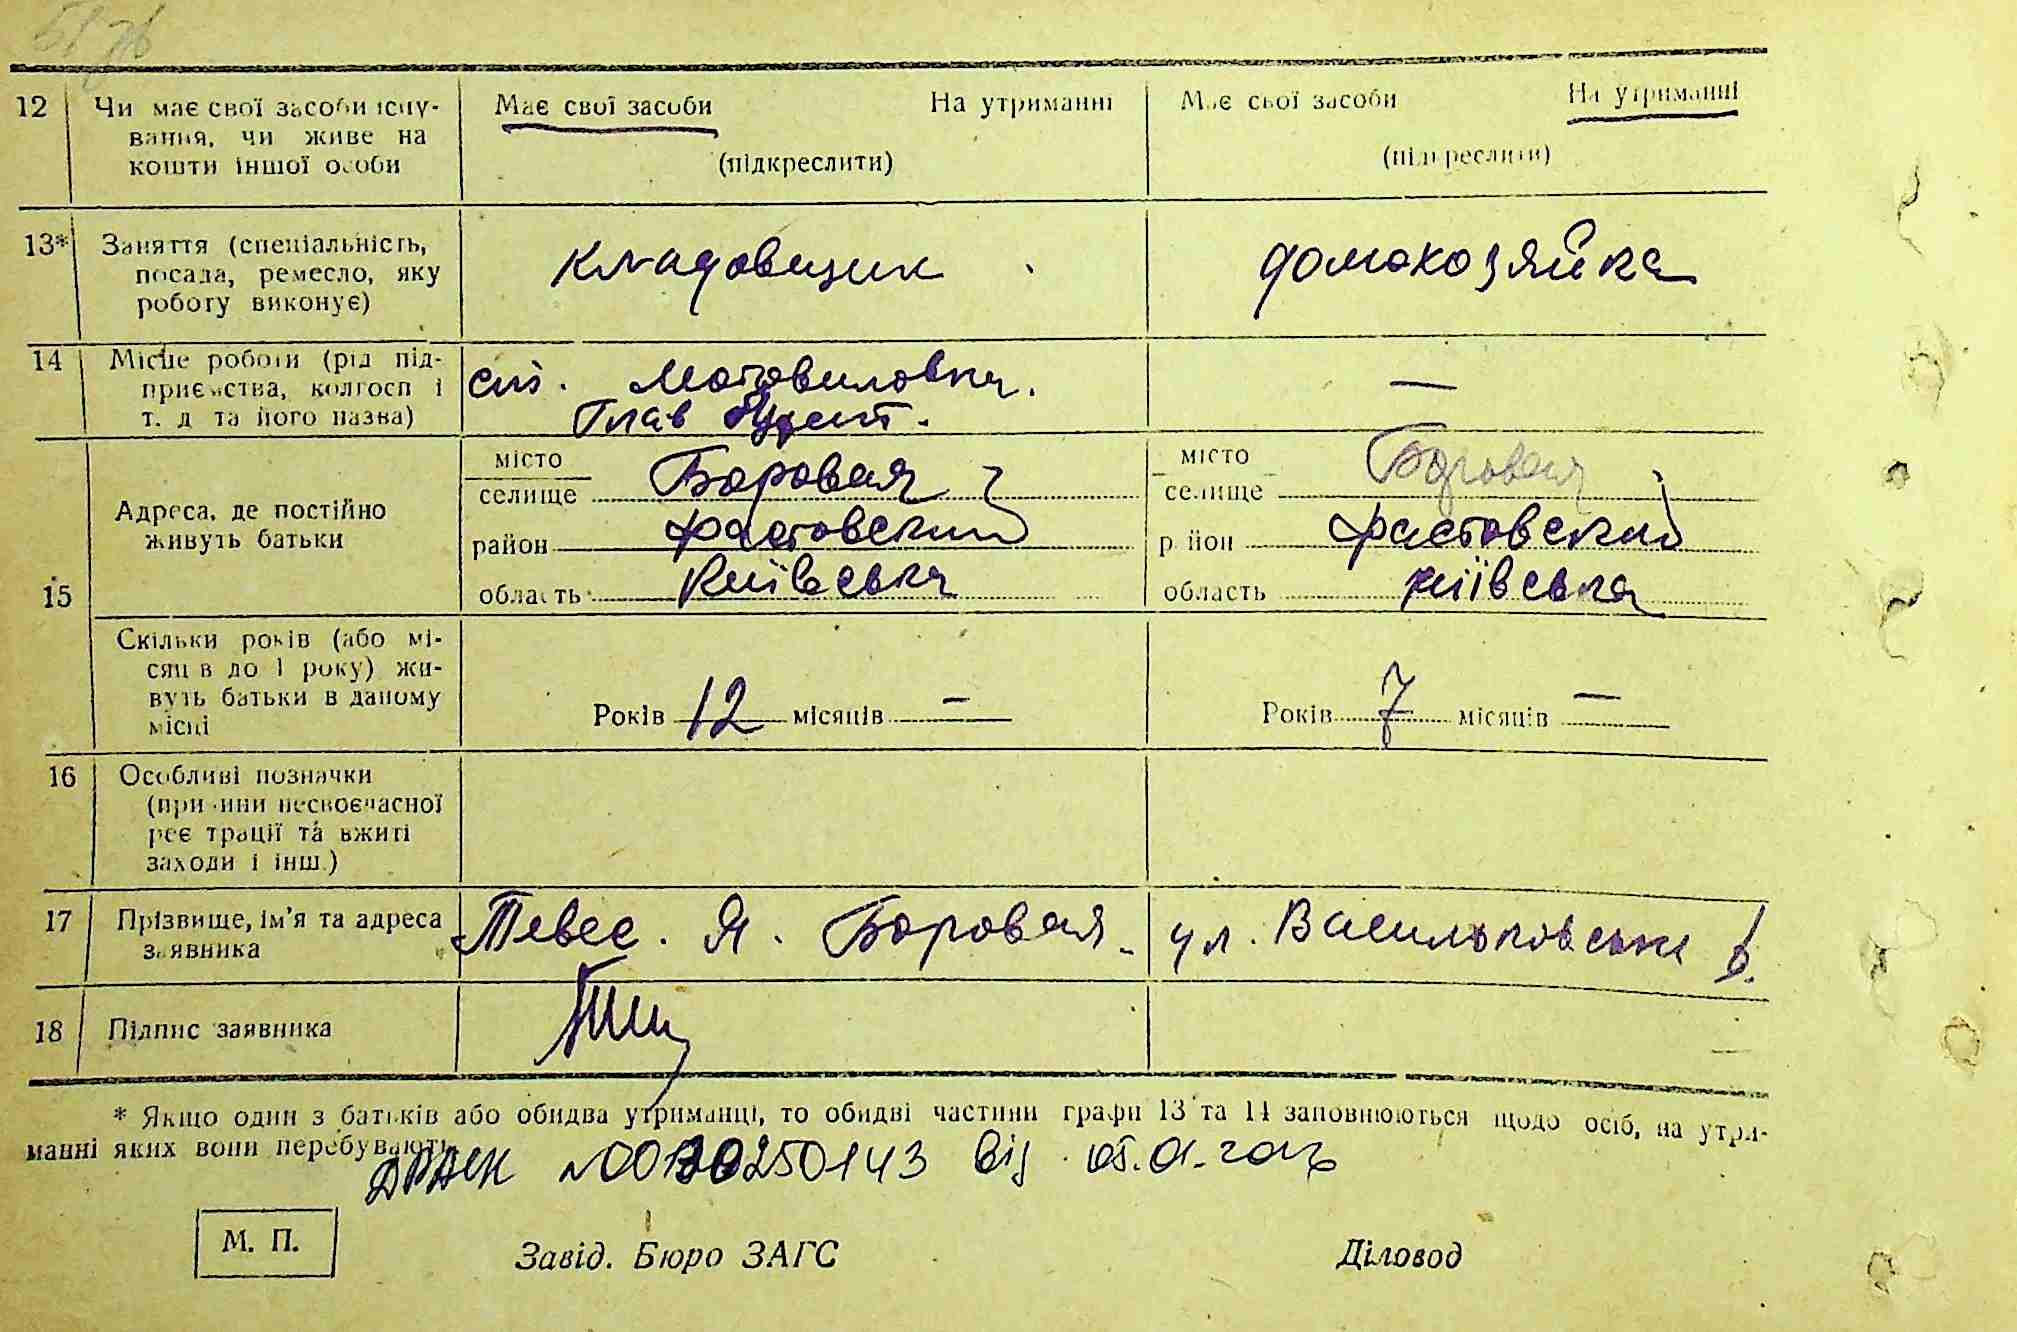 12 Чи має свої засоби існу- Має свої засоби На утриманні Має свої засоби На утриманні
вання, чи живе на
кошти іншої особи (підкреслити) (підкреслити)
13* Заняття (спеціальність,
посада, ремесло, яку кладовщик домохозяйка
роботу виконує)
14 Місце роботи (рід під-
приємства, колгосп і ст. Мотовиловка. —
т. д та його назва) Глав
місто Боровая місто Боровая
селище селище
Адреса, де постійно район Фастовский район Фастовский
живуть батьки
15 область Київська область Київська
Скільки років (або мі-
сяців до 1 року) жи-
вуть батьки в даному Років 12 місяців — Років 7 місяців —
місці
16 Особливі позначки
(причини несвоєчасної
реєстрації та вжиті
заходи і інш.)
17 Прізвище, ім'я та адреса Тевес. Я. Боровая. ул. Васильковська
заявника
18 Підпис заявника
* Якщо один з батьків або обидва утриманці, то обидві частини графи 13 та 14 заповнюються щодо осіб, на утри-
манні яких вони перебувають
250143 від
М. П. Завід. Бюро ЗАГС Діловод